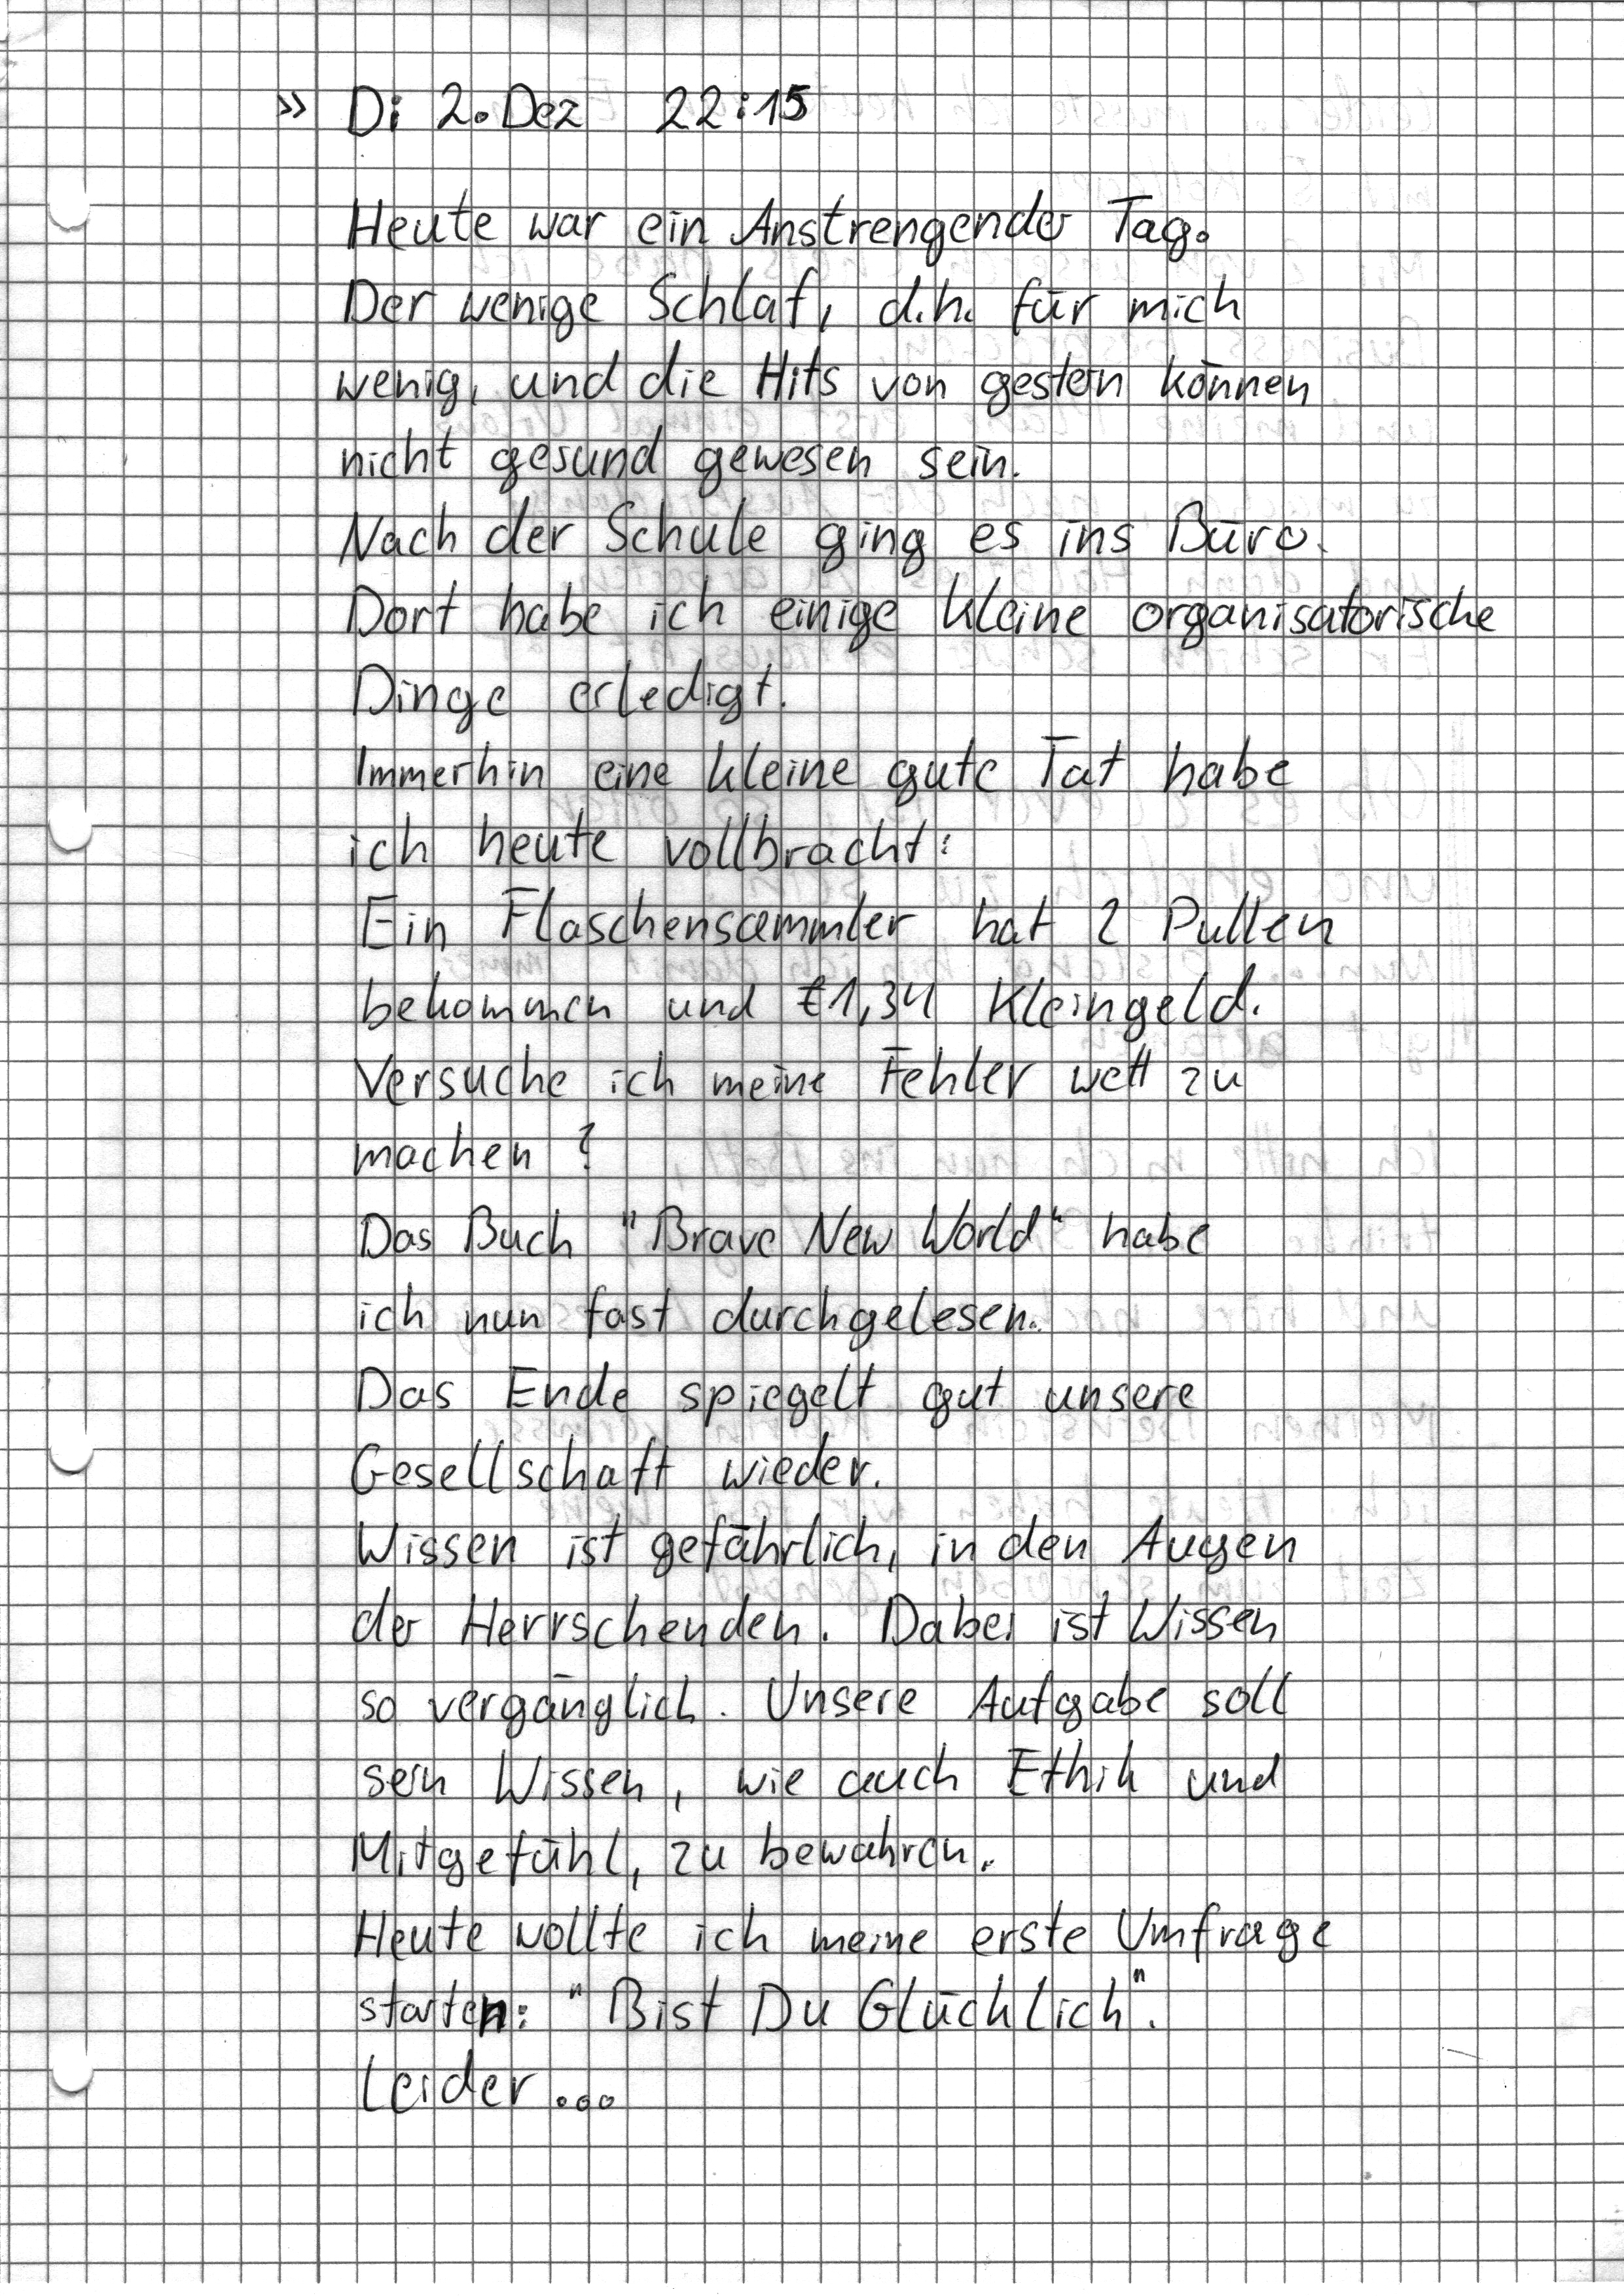 » Di 2. Dez 22:15
Heute war ein Anstrengender Tag.
Der wenige Schlaf, d.h. für mich
wenig, und die Hits von gestern können
nicht gesund gewesen sein.
Nach der Schule ging es ins Büro.
Dort habe ich einige kleine organisatorische
Dinge erledigt.
Immerhin eine kleine gute Tat habe
ich heute vollbracht:
Ein Flaschensammler hat 2 Pullen
bekommen und €1,34 Kleingeld.
Versuche ich meine Fehler wett zu
machen?
Das Buch "Brave New World" habe
ich nun fast durchgelesen.
Das Ende spiegelt gut unsere
Gesellschaft wieder.
Wissen ist gefährlich, in den Augen
der Herrschenden. Dabei ist Wissen
so vergänglich. Unsere Aufgabe soll
sein Wissen, wie auch Ethik und
Mitgefühl, zu bewahren.
Heute wollte ich meine erste Umfrage
starten: "Bist Du Glücklich".
Leider...